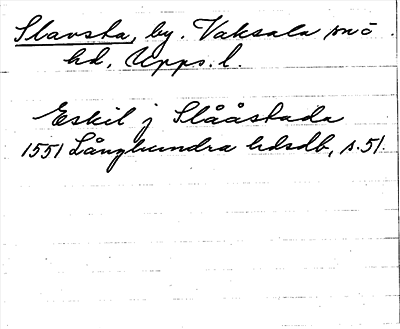 Slavsta, by. Vaksala sn o.
hd, Upps. l.
Eskil j Slååstada
1551 Långhundra hdsdb, s. 51.